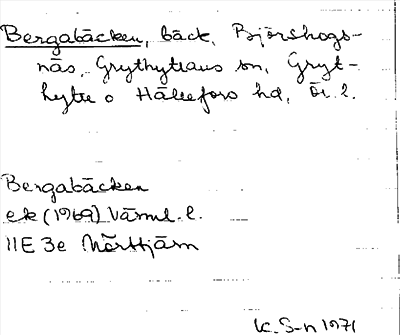 Bergabäcken, bäck, Björskogs-
näs, Grythyttans sn, Gryt-
hytte o Hällefors hd, Ör. l.
Bergabäcken
ek (1969) Värml. l.
11E 3e
K. S-n 1971